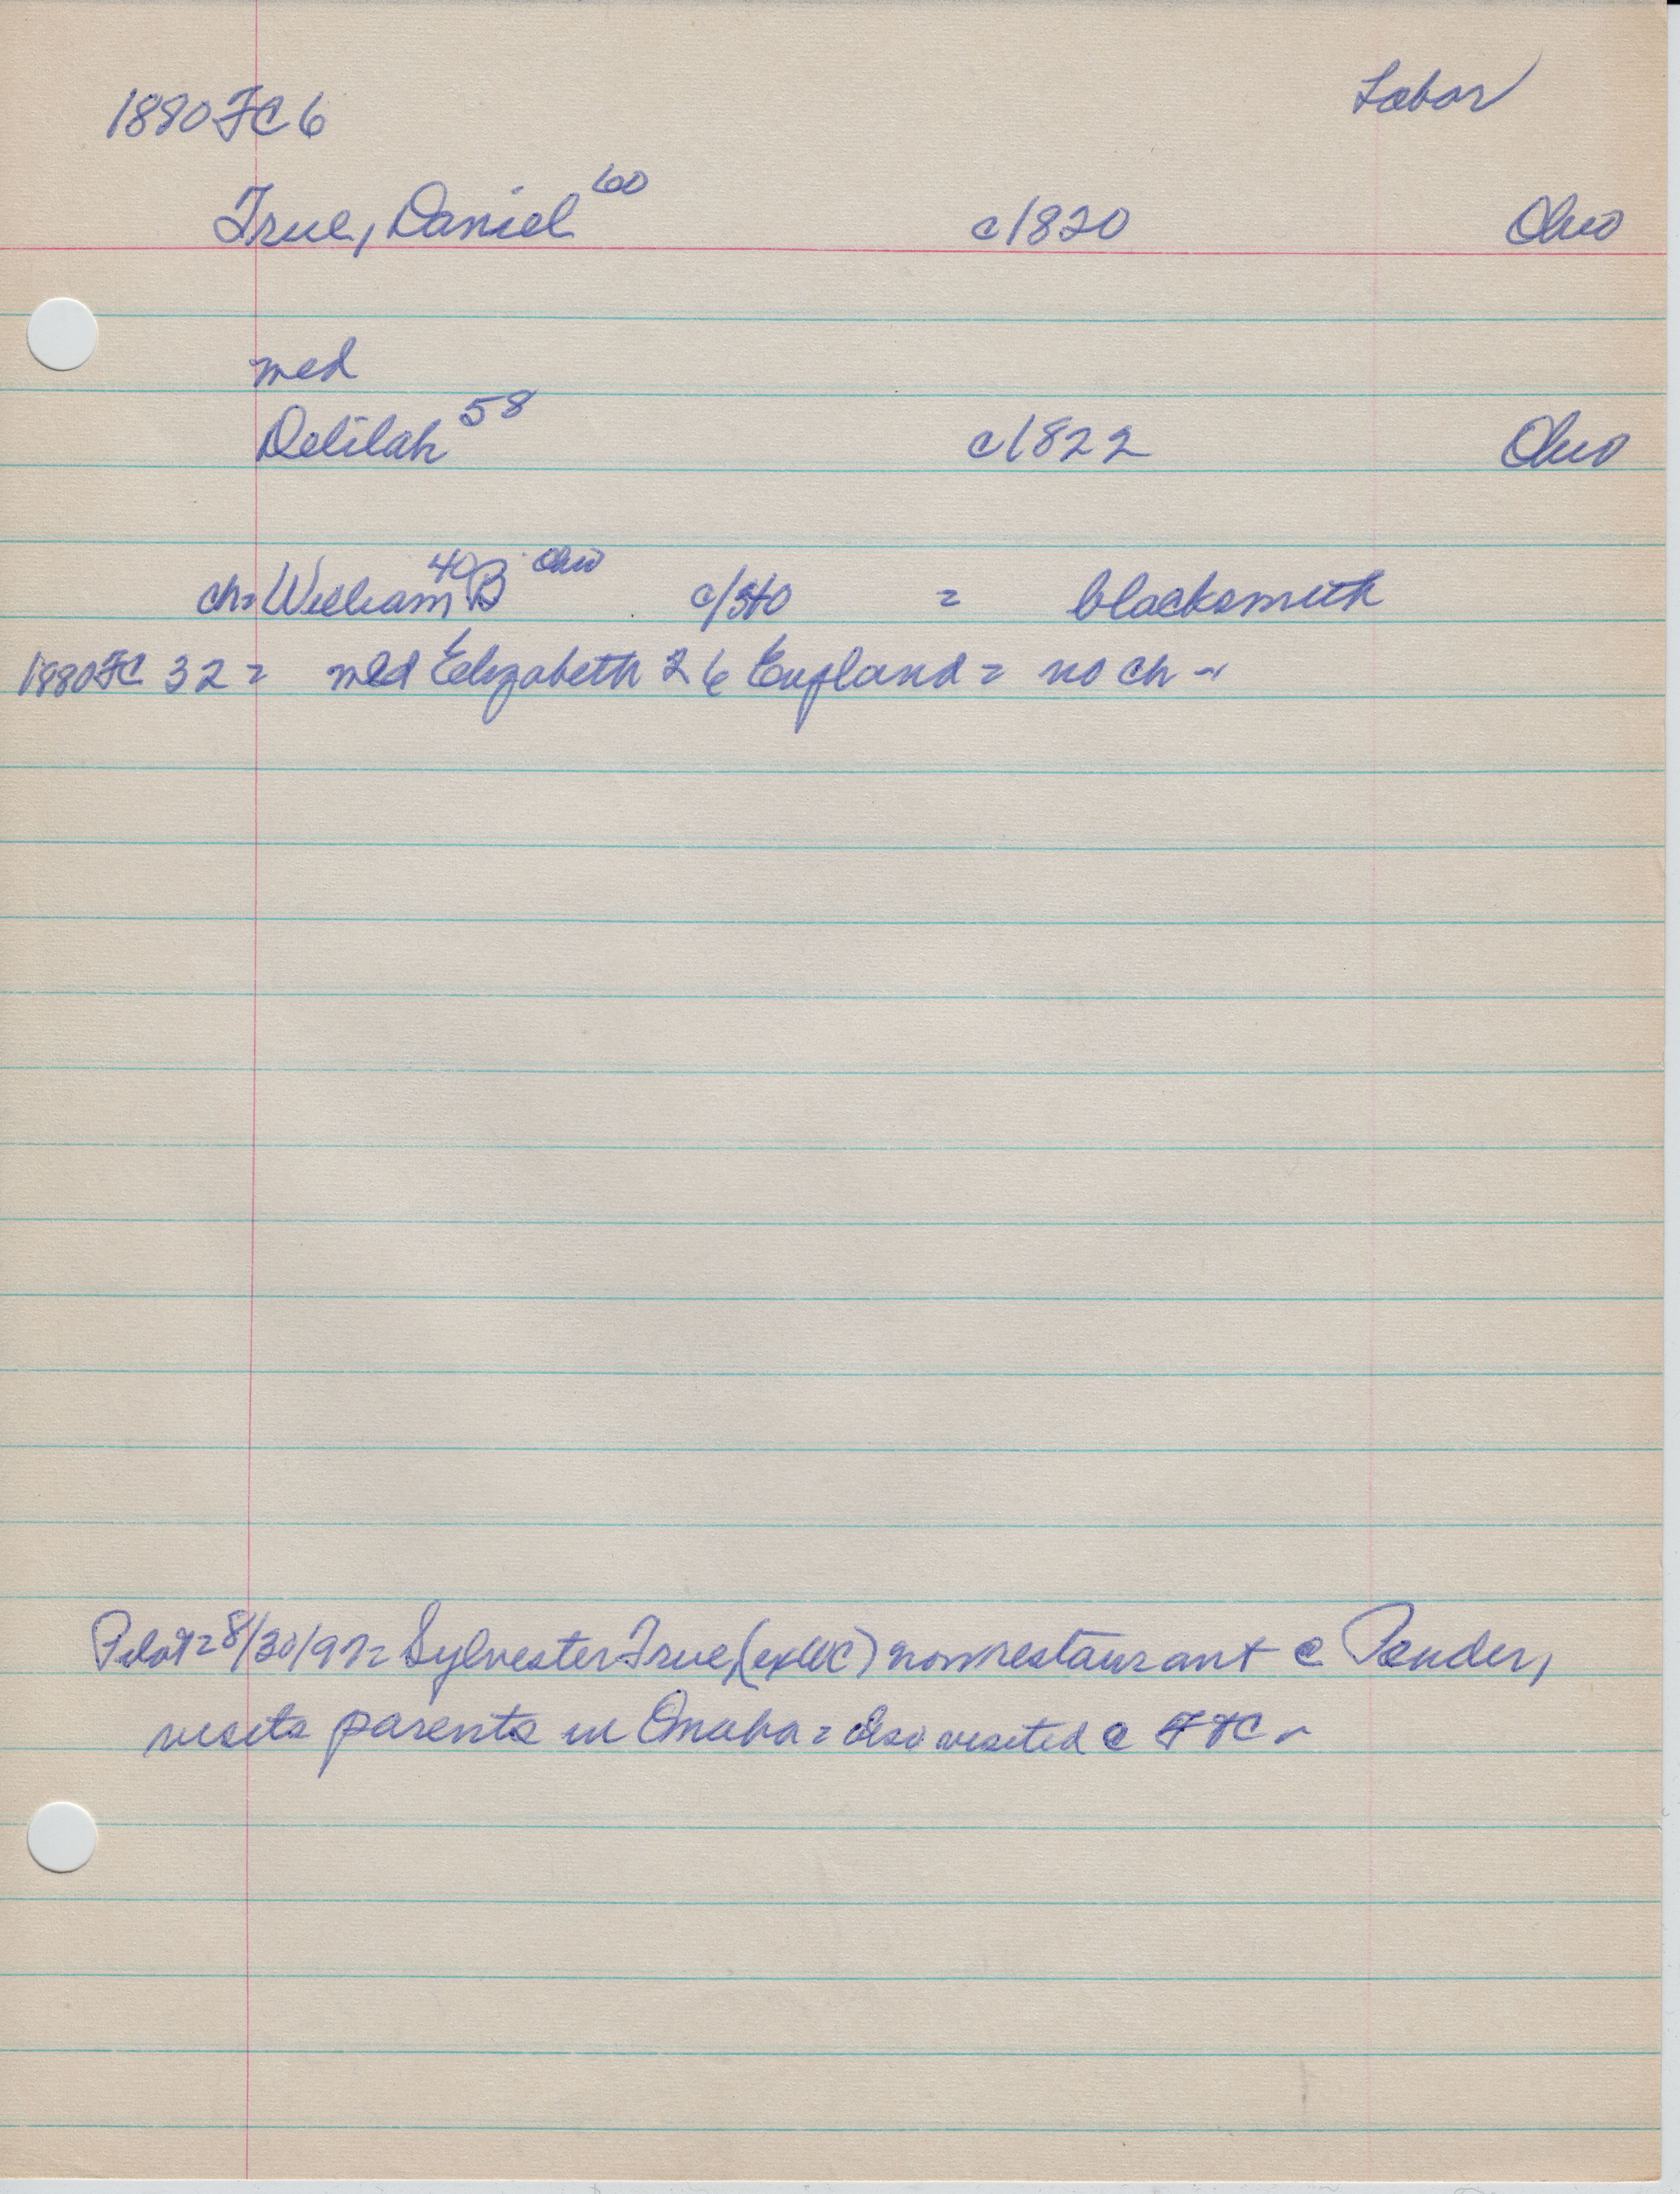 1880 FC 6 Labor
True, Daniel 60 c/1820 Ohio
med
Delilah 58 c/1822 Ohio
ch= William 40 B Ohio c/840 = blacksmith
1880 FC 32 = med Elizabeth 26 England = no ch -
Pilot= 8/30/97= Sylvester True, (ex WC) now restaurant @ Pender,
visits parents in Omaha = also visited @ Ft C -